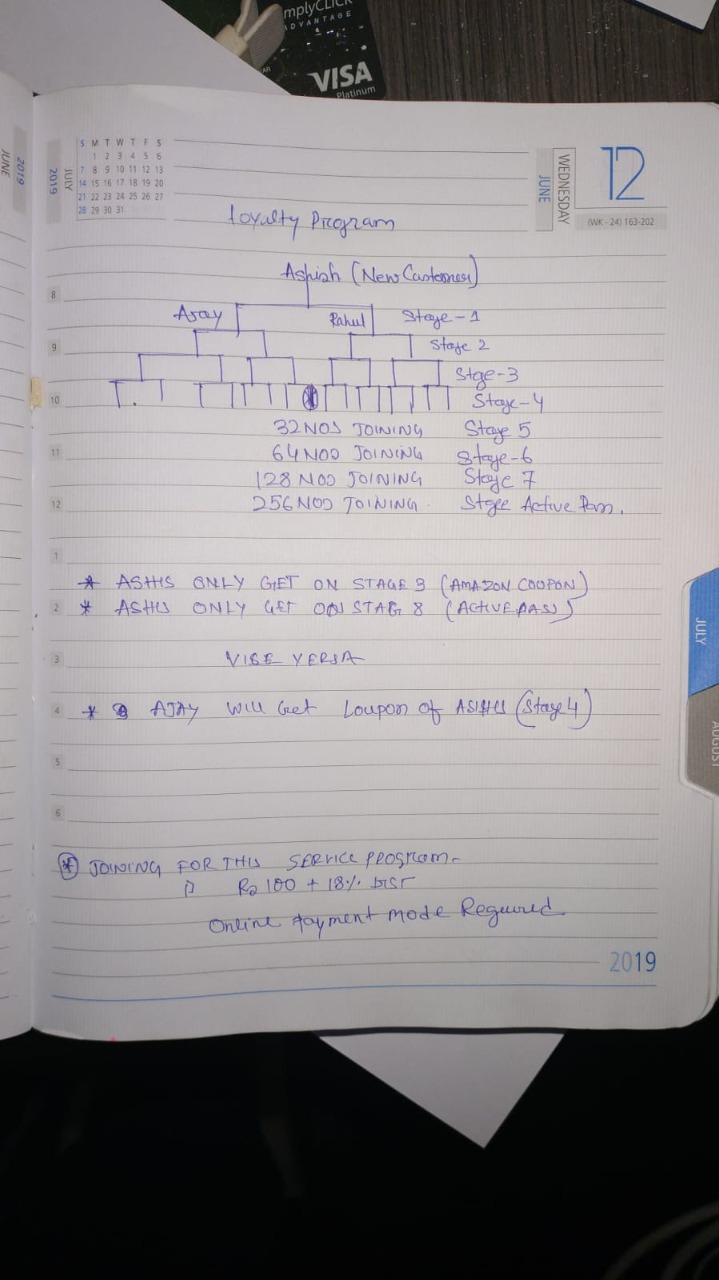 mplyCLICK
ADVANTAGE
VISA
Platinum
JUNE
2019
2019
JULY
S M T W T F S
1 2 3 4 5 6
7 8 9 10 11 12 13
14 15 16 17 18 19 20
21 22 23 24 25 26 27
28 29 30 31
JUNE
WEDNESDAY
12
(WK - 24) 163-202
Loyalty Program
Ashish (New Customer)
8
Ajay Rahul Stage-1
9 Stage 2
Stge-3
10 Stage-4
32 NOS JOINING Stage 5
11 64 NOS JOINING Stage-6
128 NOS JOINING Stage 7
12 256 NOS JOINING Stgee Active Pass.
1
* ASHIS ONLY GET ON STAGE 3 (AMAZON COOPON)
2 * ASHIS ONLY GET ON STAGE 8 (ACTIVE PASS)
3 VISE VERSA
4 * AJAY Will Get Coupon of ASISHS (Stage 4)
5
6
* JOINING FOR THIS SERVICE PROGRAM-
Rs 100 + 18%
Online Payment mode Required
2019
JULY
AUGUST